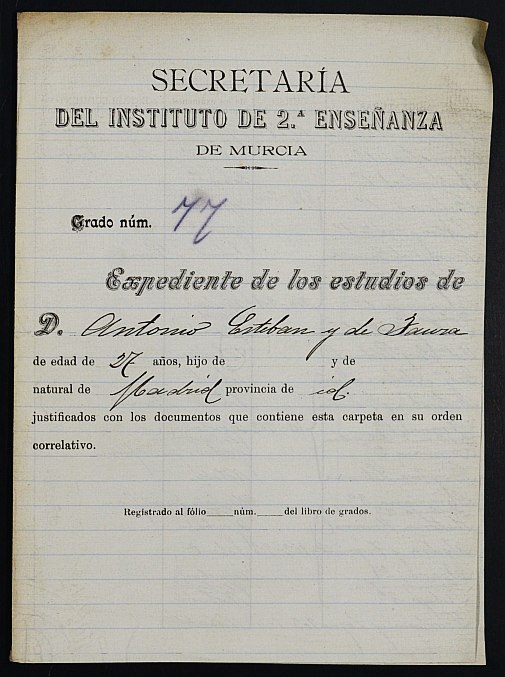 SECRETARÍA
DEL INSTITUTO DE 2.ª ENSEÑANZA
DE MURCIA
Grado núm. 77
Expediente de los estudios de
D. Antonio Esteban y de Faura
de edad de 27 años, hijo de y de
natural de Madrid provincia de id.
justificados con los documentos que contiene esta carpeta en su orden
correlativo.
Registrado al fólio____núm.____del libro de grados.